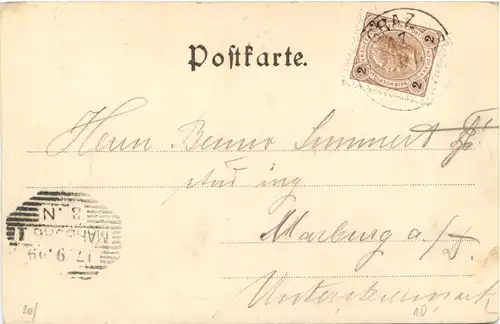 Postkarte.
GRAZ
2 2
2 2
Herrn Benno
stud ing
Marburg a/D.
Untersteiermark
MARBURG 1
17.9.99
8.N
20/
10